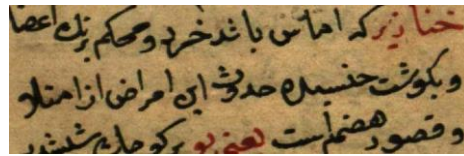 خنازیر که اماس باشد خرد و محکم برنک اعضا
و بکوشت جنسیده حدوث این امراض از امتلاء
و قصور هضم است یعنی بو